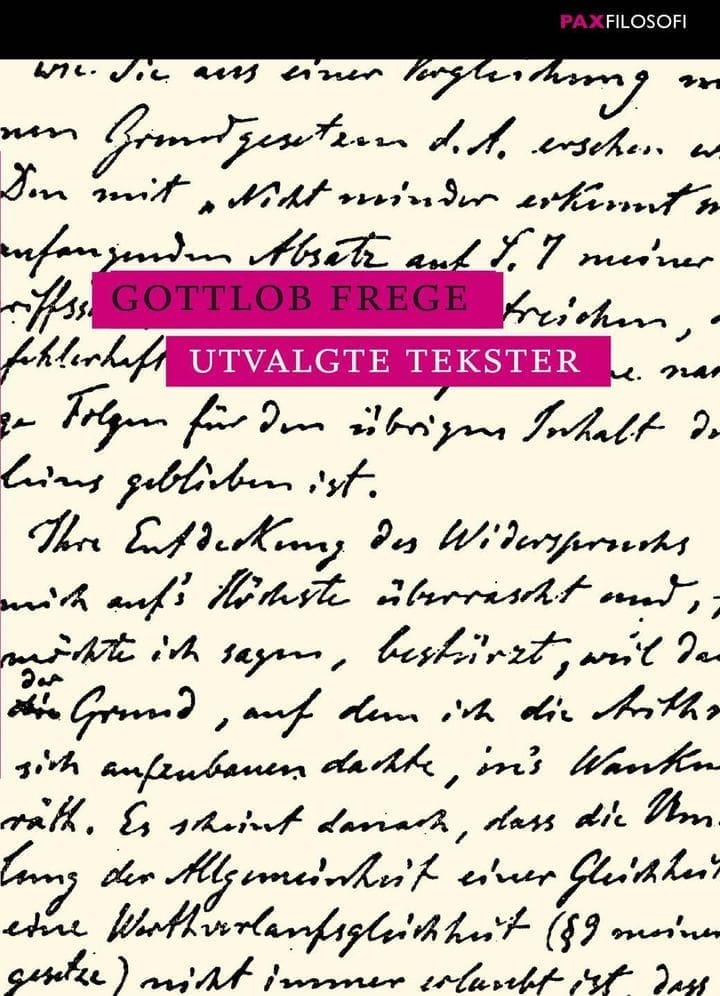 PAXFILOSOFI
wie Sie aus einer Vergleichung
nen Grundgesetzen d. A. ersehen
Den mit „Nicht minder erkennt
anfangenden Absatz auf S. 7 meiner
GOTTLOB FREGE
streichen,
UTVALGTE TEKSTER
fehlerhaft
Folgen für den übrigen Inhalt
leins geblieben ist.
Ihre Entdeckung des Widerspruchs
mich auf's Höchste überrascht und,
möchte ich sagen, bestürzt, weil
der
Grund, auf dem ich die
sich aufzubauen dachte, in's
räth. Es scheint danach, dass die
lung der Allgemeinheit einer
eine Werthverlaufsgleichheit (§9
gesetze) nicht immer erlaubt ist, dass